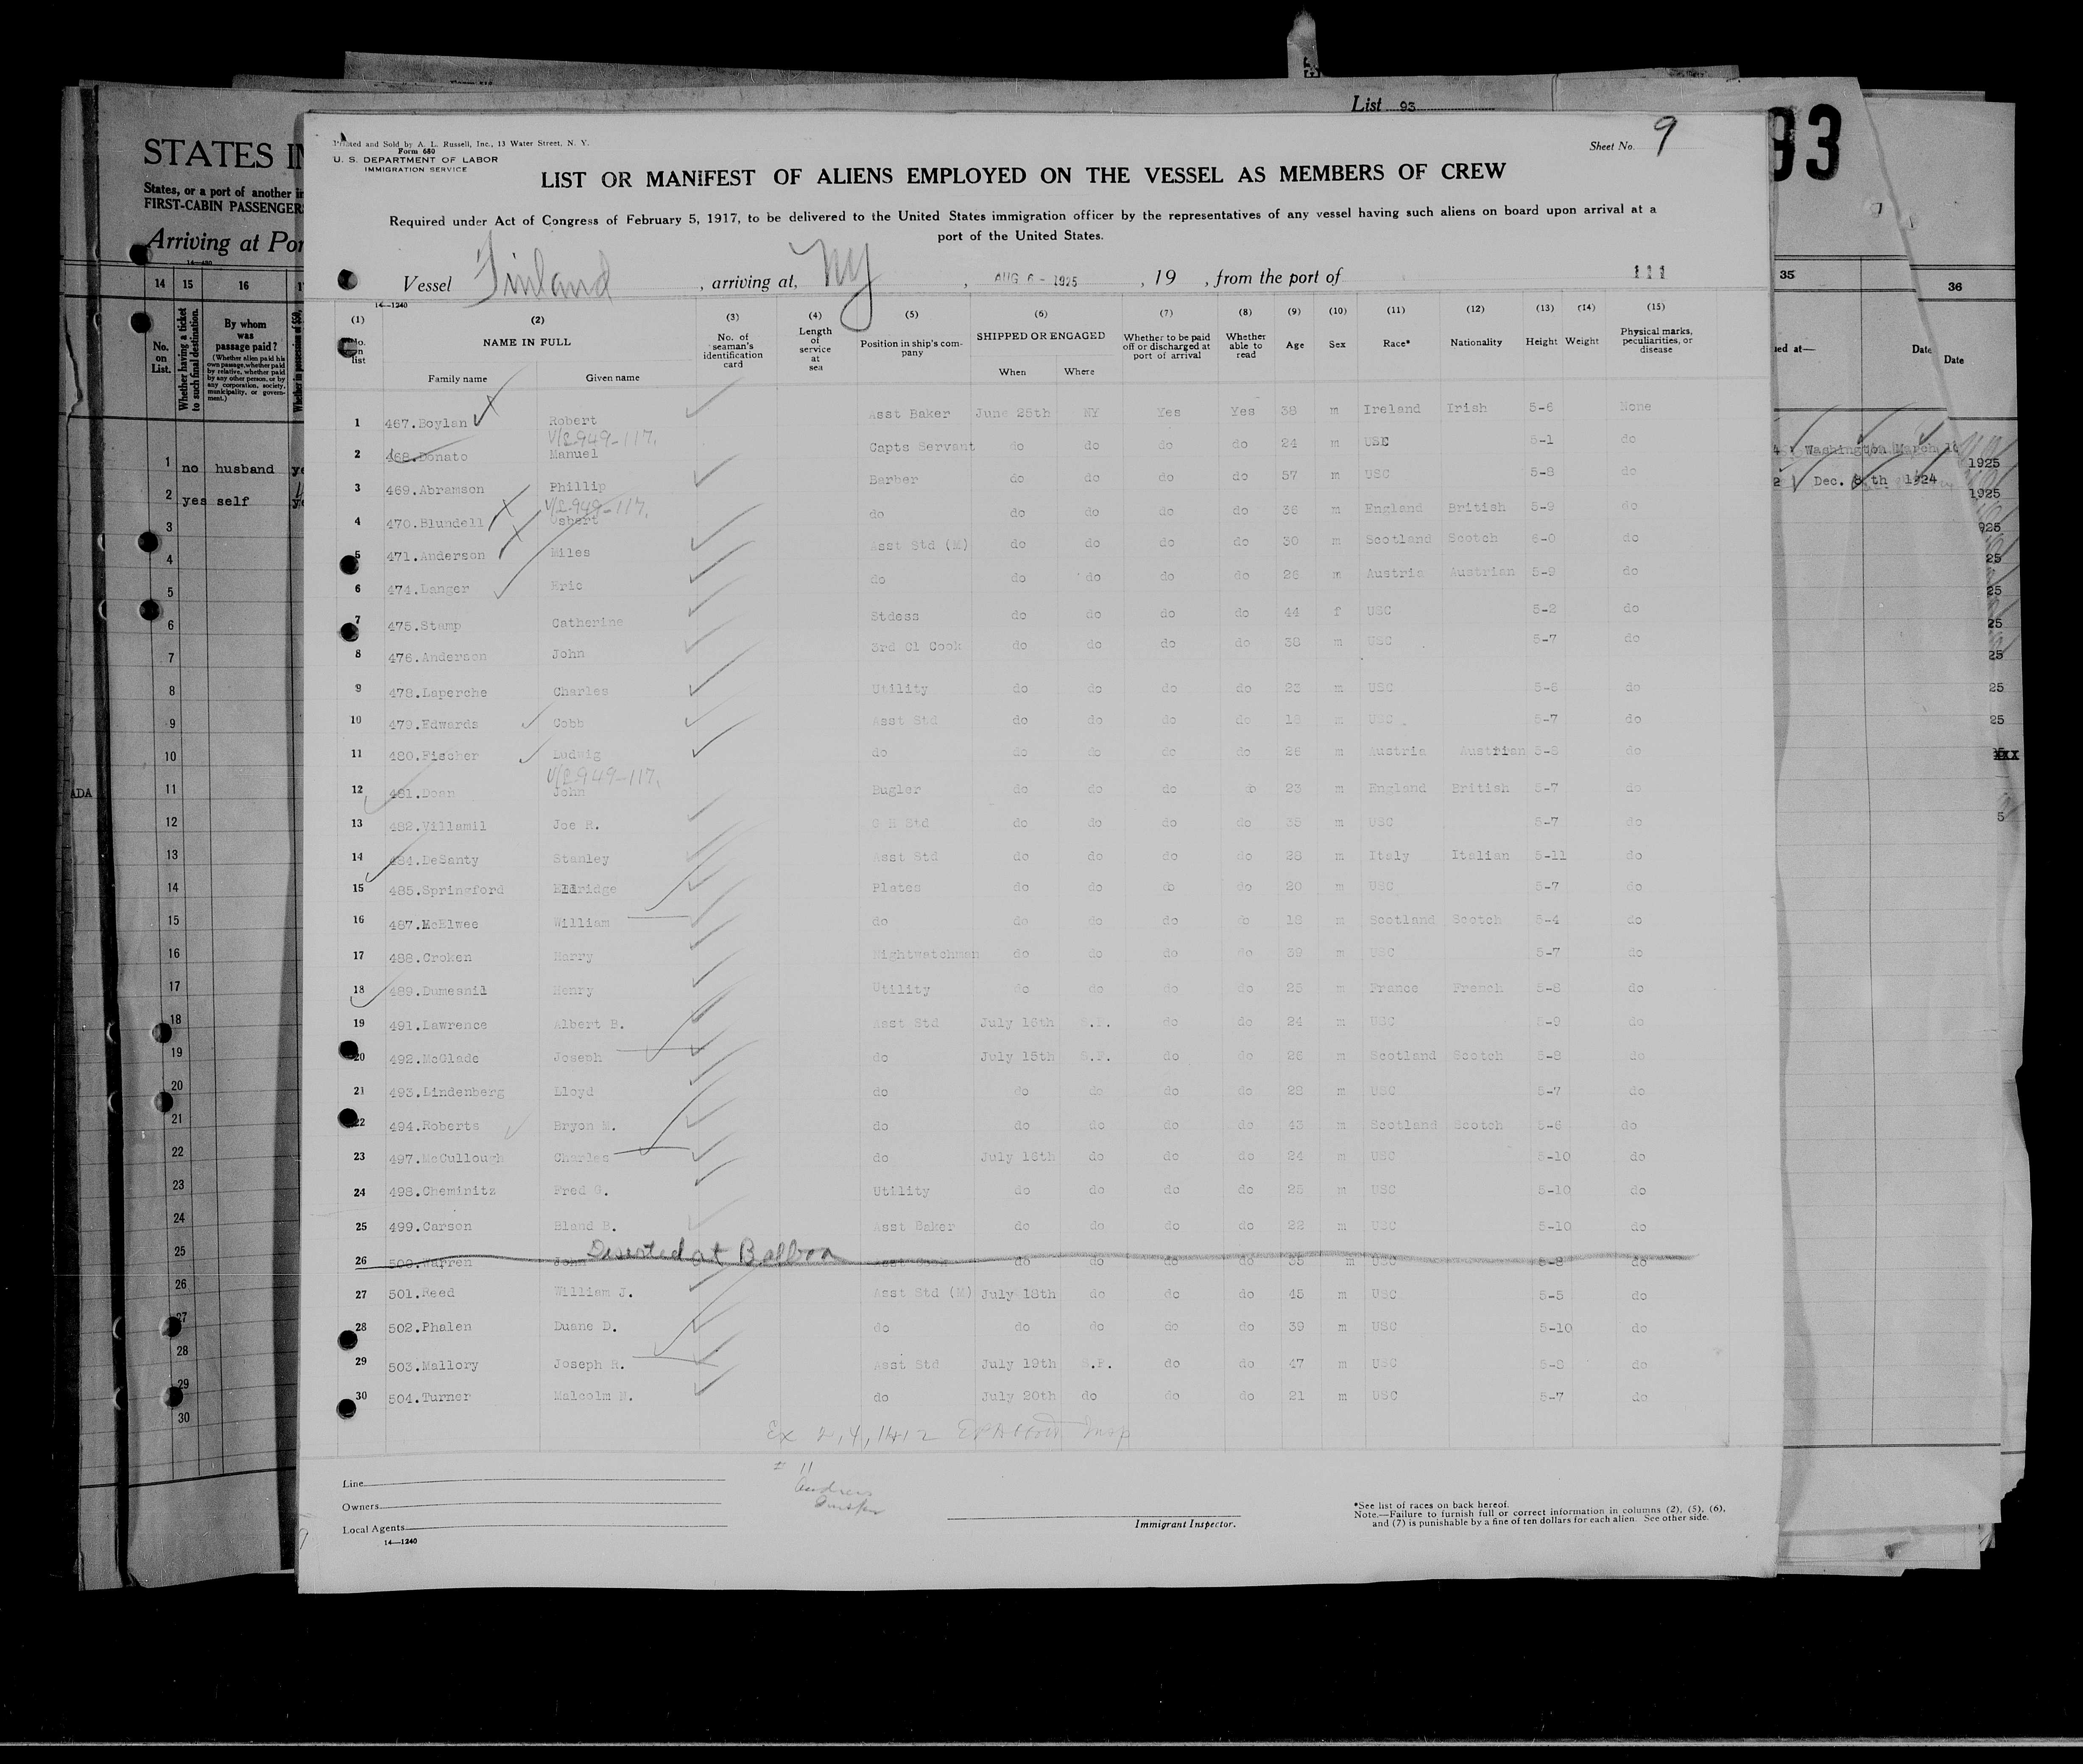 List 93
93
STATES IN
States, or a port of another in
FIRST-CABIN PASSENGER
Arriving at Por
14 15 16
No. on List.
Whether having a ticket to such final destination.
By whom was passage paid?
1 no husband
2 yes self
ADA
35 36
Date Date
Washington March
Dec. 8 th 1924
1925
1925
Printed and Sold by A. L. Russell, Inc., 13 Water Street, N. Y.
Form 680
U. S. DEPARTMENT OF LABOR
IMMIGRATION SERVICE
Sheet No. 9
LIST OR MANIFEST OF ALIENS EMPLOYED ON THE VESSEL AS MEMBERS OF CREW
Required under Act of Congress of February 5, 1917, to be delivered to the United States immigration officer by the representatives of any vessel having such aliens on board upon arrival at a
port of the United States.
Vessel Finland , arriving at, NY , AUG 6 - 1925 , 19 , from the port of 111
14—1240
(1) (2) (3) (4) (5) (6) (7) (8) (9) (10) (11) (12) (13) (14) (15)
No. on list NAME IN FULL No. of seaman's identification card Length of service at sea Position in ship's company SHIPPED OR ENGAGED Whether to be paid off or discharged at port of arrival Whether able to read Age Sex Race* Nationality Height Weight Physical marks, peculiarities, or disease
Family name Given name When Where
1 467.Boylan Robert Asst Baker June 25th NY Yes Yes 38 m Ireland Irish 5-6 None
V/L 949-117.
2 468.Donato Manuel Capts Servant do do do do 24 m USC 5-1 do
3 469.Abramson Phillip Barber do do do do 57 m USC 5-8 do
V/L 949-117.
4 470.Blundell Osbert do do do do do 36 m England British 5-9 do
5 471.Anderson Miles Asst Std (M) do do do do 30 m Scotland Scotch 6-0 do
6 474.Langer Eric do do do do do 26 m Austria Austrian 5-9 do
7 475.Stamp Catherine Stdess do do do do 44 f USC 5-2 do
8 476.Anderson John 3rd Cl Cook do do do do 38 m USC 5-7 do
9 478.Laperche Charles Utility do do do do 23 m USC 5-6 do
10 479.Edwards Cobb Asst Std do do do do 18 m USC 5-7 do
11 480.Fischer Ludwig do do do do do 26 m Austria Austrian 5-8 do
V/L 949-117.
12 481.Doan John Bugler do do do do 23 m England British 5-7 do
13 482.Villamil Joe R. do do do do 35 m USC 5-7 do
14 484.DeSanty Stanley Asst Std do do do do 28 m Italy Italian 5-11 do
15 485.Springford Eldridge Plates do do do do 20 m USC 5-7 do
16 487.McElwee William do do do do do 18 m Scotland Scotch 5-4 do
17 488.Croken Harry Nightwatchman do do do do 39 m USC 5-7 do
18 489.Dumesnil Henry Utility do do do do 25 m France French 5-8 do
19 491.Lawrence Albert B. Asst Std July 16th S.F. do do 24 m USC 5-9 do
20 492.McGlade Joseph do July 15th S.F. do do 26 m Scotland Scotch 5-8 do
21 493.Lindenberg Lloyd do do do do do 28 m USC 5-7 do
22 494.Roberts Bryon M. do do do do do 43 m Scotland Scotch 5-6 do
23 497.McCullough Charles do July 16th do do do 24 m USC 5-10 do
24 498.Cheminitz Fred G. Utility do do do do 25 m USC 5-10 do
25 499.Carson Bland R. Asst Baker do do do do 22 m USC 5-10 do
Deserted at Balboa
26 500.Warren John Asst Cook do do do do 35 m USC 5-8 do
27 501.Reed William J. Asst Std (M) July 18th do do do 45 m USC 5-5 do
28 502.Phalen Duane D. do do do do do 39 m USC 5-10 do
29 503.Mallory Joseph R. Asst Std July 19th S.F. do do 47 m USC 5-8 do
30 504.Turner Malcolm M. do July 20th do do do 21 m USC 5-7 do
Ex 2, 4, 12 Insp
# 11
Line
Owners
Local Agents
14—1240
Immigrant Inspector.
*See list of races on back hereof.
Note.—Failure to furnish full or correct information in columns (2), (5), (6),
and (7) is punishable by a fine of ten dollars for each alien. See other side.